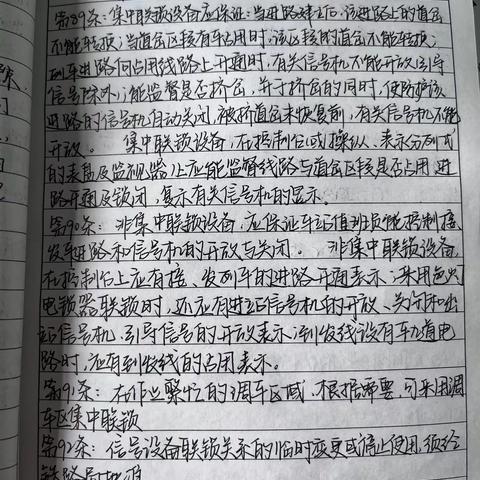 第89条:集中联锁设备应保证:当进路建立后,该进路上的道岔
不能转换;当道岔区段有车占用时,该区段的道岔不能转换;
列车进路向占用线路上开通时,有关信号机不能开放(引导
信号除外);能监督是否挤岔,并于挤岔的同时,使防护该
进路的信号机自动关闭,被挤道岔未恢复前,有关信号机不能
开放。 集中联锁设备,在控制台(或操纵、表示分列式
的表盘及监视器)上应能监督线路与道岔区段是否占用,进
路开通及锁闭,复示有关信号机的显示。
第90条:非集中联锁设备,应保证车站值班员能控制接、
发车进路和信号机的开放与关闭。 非集中联锁设备,
在控制台上应有接、发列车的进路开通表示;采用色灯
电锁器联锁时,还应有进站信号机的开放、关闭和出
站信号机、引导信号的开放表示;到发线设有轨道电
路时,应有到发线的占用表示。
第91条:在作业繁忙的调车区域,根据需要,可采用调
车区集中联锁
第92条:信号设备联锁关系的临时变更或停止使用,须经
铁路局批准